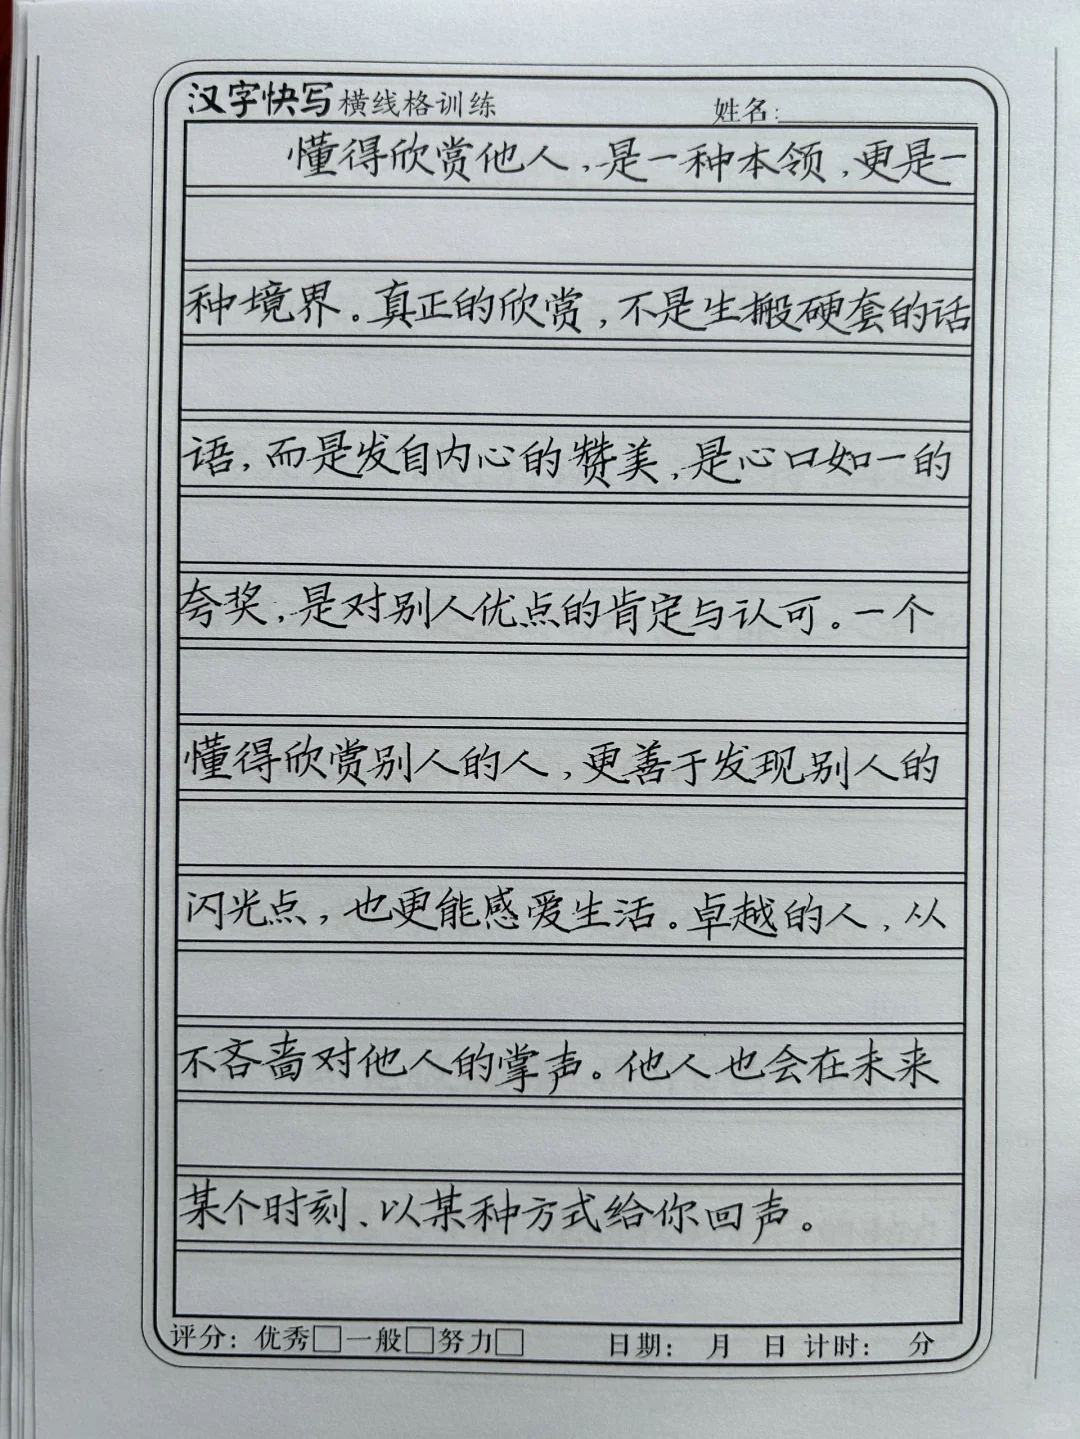 汉字快写横线格训练 姓名:
懂得欣赏他人,是一种本领,更是一
种境界。真正的欣赏,不是生搬硬套的话
语,而是发自内心的赞美,是心口如一的
夸奖,是对别人优点的肯定与认可。一个
懂得欣赏别人的人,更善于发现别人的
闪光点,也更能感爱生活。卓越的人,从
不吝啬对他人的掌声。他人也会在未来
某个时刻、以某种方式给你回声。
评分: 优秀□一般□努力□ 日期: 月 日 计时: 分